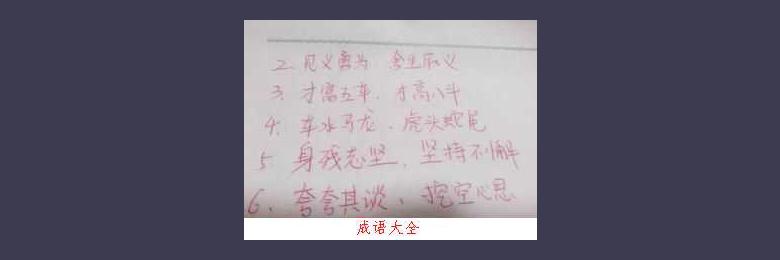 2. 见义勇为 舍生取义
3. 才富五车. 才高八斗
4. 车水马龙. 虎头蛇尾
5. 身残志坚. 坚持不懈
6. 夸夸其谈、挖空心思
成语大全